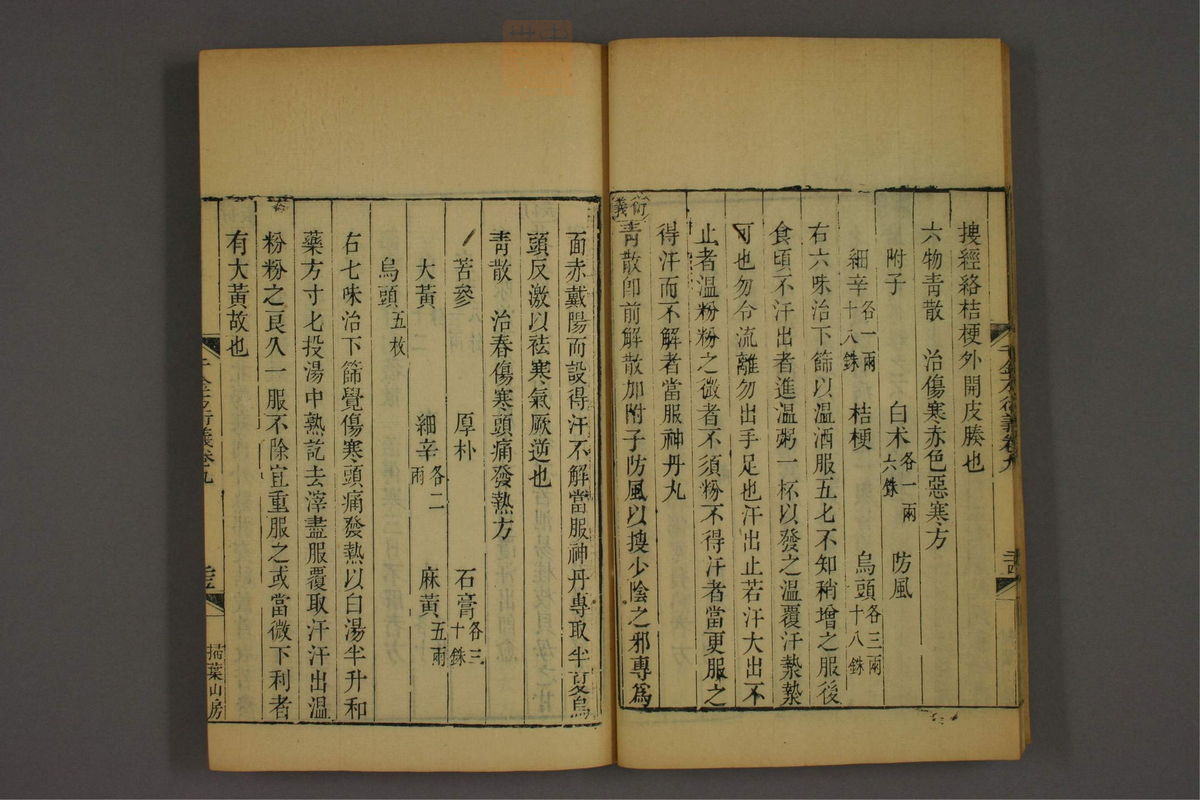 搜經絡桔梗外開皮腠也
六物青散　治傷寒赤色惡寒方
附子　白朮各一兩六銖　防風
細辛各一兩十八銖　桔梗　烏頭各三兩十八銖
右六味治下篩以溫酒服五七不知稍增之服後
食頃不汗出者進溫粥一杯以發之溫覆汗漐漐
可也勿令流離勿出手足也汗出止若汗大出不
止者溫粉粉之微者不須粉不得汗者當更服之
得汗而不解者當服神丹丸
衍義
青散卽前解散加附子防風以搜少陰之邪專爲
千金方衍義卷九　二十四
面赤戴陽而設得汗不解當服神丹專取半夏烏
頭反激以祛寒氣厥逆也
青散　治春傷寒頭痛發熱方
苦參　厚朴　石膏各三十銖
大黃　細辛各二兩　麻黃五兩
烏頭五枚
右七味治下篩覺傷寒頭痛發熱以白湯半升和
藥方寸匕投湯中熟訖去滓盡服覆取汗汗出溫
粉粉之良久一服不除宜重服之或當微下利者
有大黃故也
千金方衍義卷九　二十五　掃葉山房